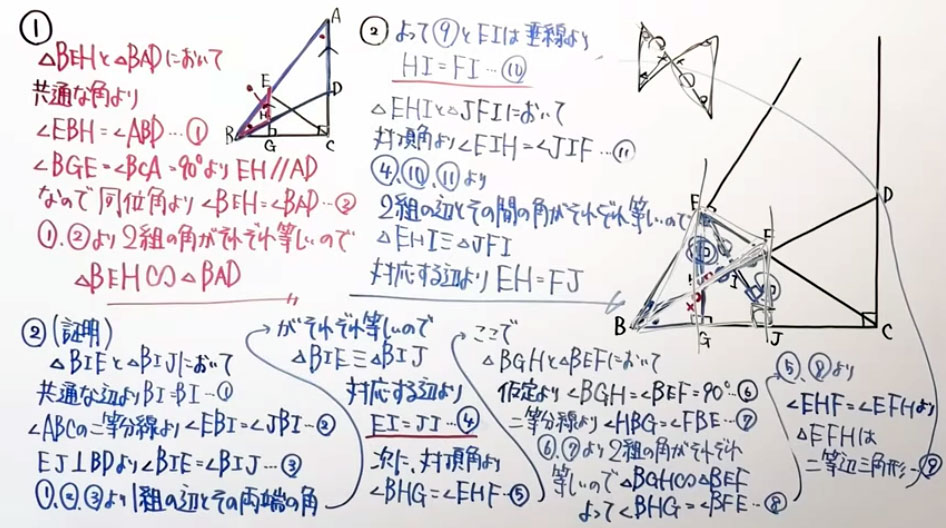 ①
△BEHと△BADにおいて
共通な角より
∠EBH=∠ABD…①
∠BGE=∠BCA=90°より EH//AD
なので同位角より∠BEH=∠BAD…②
①、②より2組の角がそれぞれ等しいので
△BEH∽△BAD
A
E
D
H
B
G
C
② よって⑨とEIは垂線より
HI=FI…⑩
△EHIと△JFIにおいて
対頂角より∠EIH=∠JIF…⑪
④、⑩、⑪より
2組の辺とその間の角がそれぞれ等しいので
△EHI≡△JFI
対応する辺より EH=FJ
D
E
F
I
B
G
J
C
②(証明)
△BIEと△BIJにおいて
共通な辺よりBI=BI…①
∠ABCの二等分線より∠EBI=∠JBI…②
EJ⊥BDより∠BIE=∠BIJ…③
①、②、③より1組の辺とその両端の角
がそれぞれ等しいので
△BIE≡△BIJ
対応する辺より
EI=JI…④
次に、対頂角より
∠BHG=∠EHF…⑤
ここで
△BGHと△BEFにおいて
仮定より∠BGH=∠BEF=90°…⑥
二等分線より∠HBG=∠FBE…⑦
⑥、⑦より2組の角がそれぞれ
等しいので△BGH∽△BEF
よって∠BHG=∠BFE…⑧
⑤、⑧より
∠EHF=∠EFHより
△EFHは
二等辺三角形…⑨